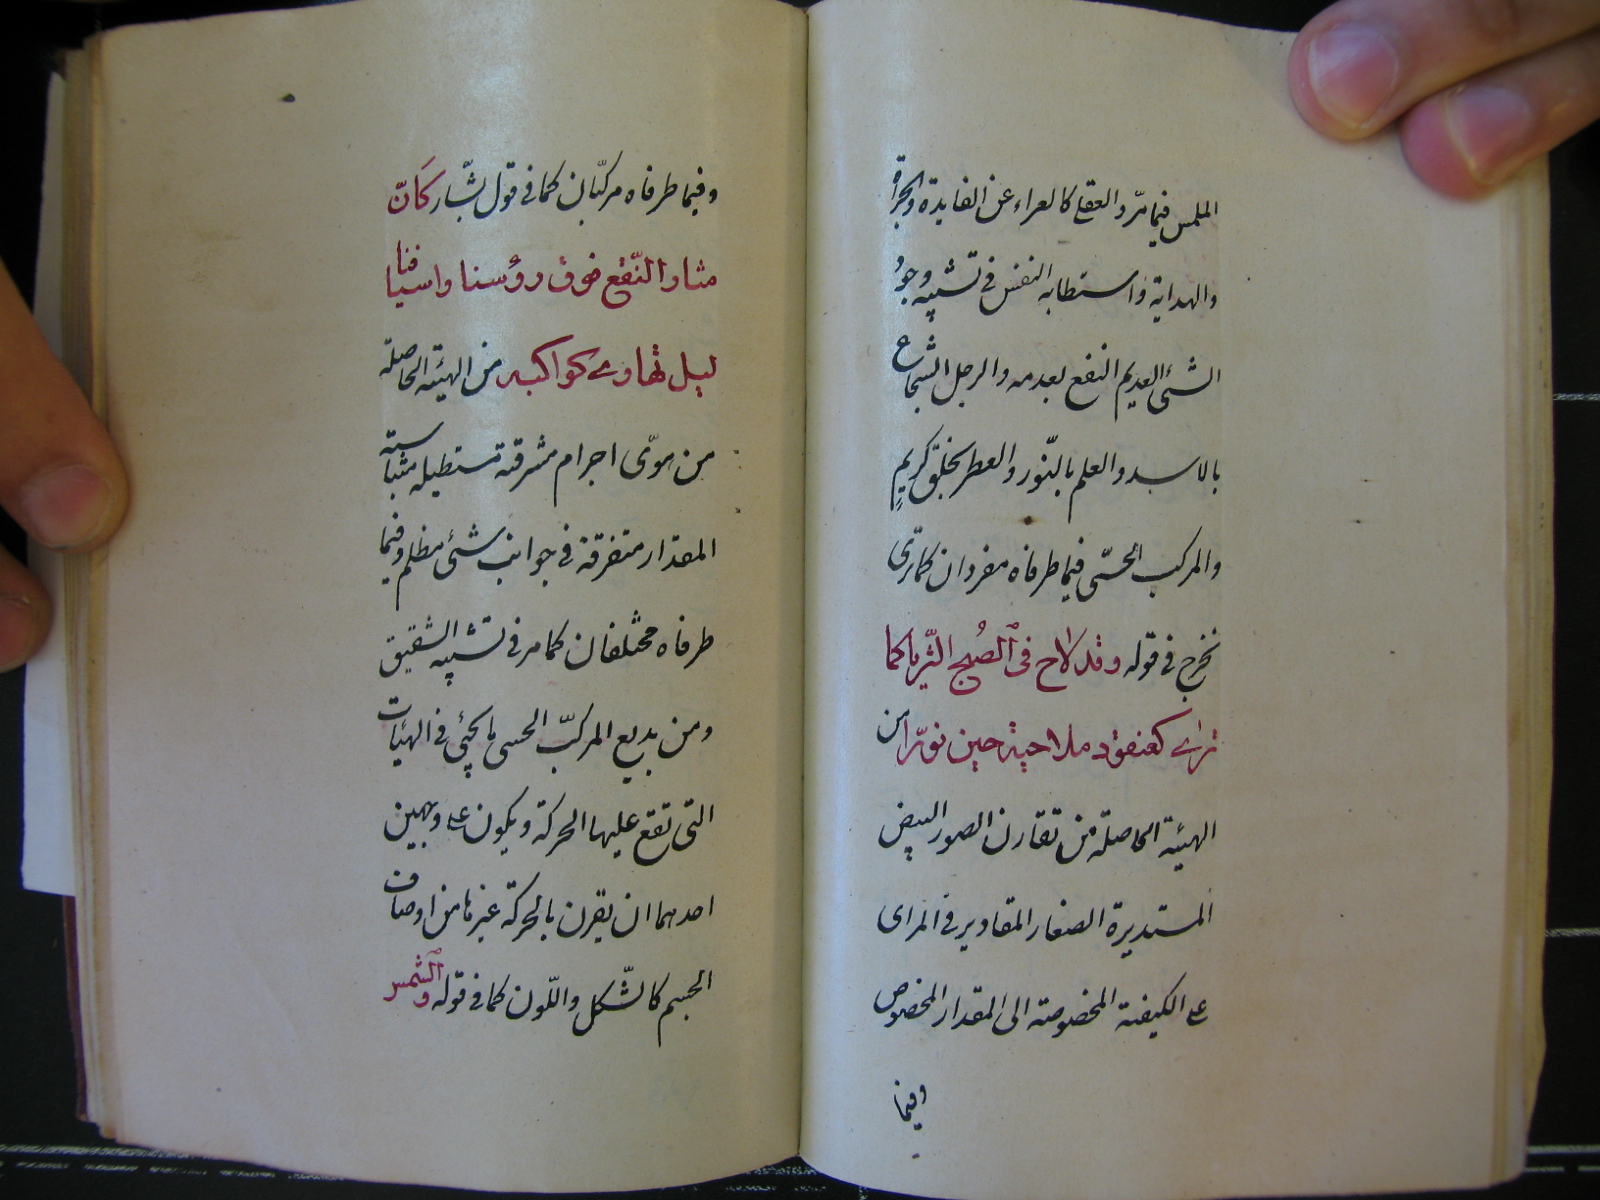 الملمس فيما مرّ والعقلے كالعراء عن الفايدة والجراة
والهداية واستطابه النفس فى تشبيه وجود
الشئ العديم النفع بعدمه والرجل الشجاع
بالاسد والعلم بالنّور والعطر بخلق كريمٍ
والمركب الحسّى فيما طرفاه مفردان كما ترى
نخرج فى قوله وقد لاح فى الصُبح الثّريا كما
ترٰے كعنقود ملاحية حين نوّرا من
الهيئة الحاصلة من تقارن الصور البيض
المستديرة الصغار المقادير فى المراى
علے الكيفية المخصوصة الى المقدار المخصوص
وفيما
وفيما طرفاه مركبّان كما فى قول بشّار كَانّ
مثار النّقع فوق روُسنا واسيافنا
ليل تهاوے كواكبه من الهيئة الحاصلة
من هوّى اجرام مشرقة مستطيله متناسبة
المقدار متفرقة فى جوانب شئ مظلم وفيما
طرفاه مختلفان كما مر فى تشبيه الشقيق
ومن بديع المركبّ الحسى ما يجئى فى الهيئات
التى تقع عليها الحركة ويكون علے وجهين
احدهما ان يقرن بالحركة غيرها من اوصاف
الجسم كالشّكل واللّون كما فى قوله والشمس